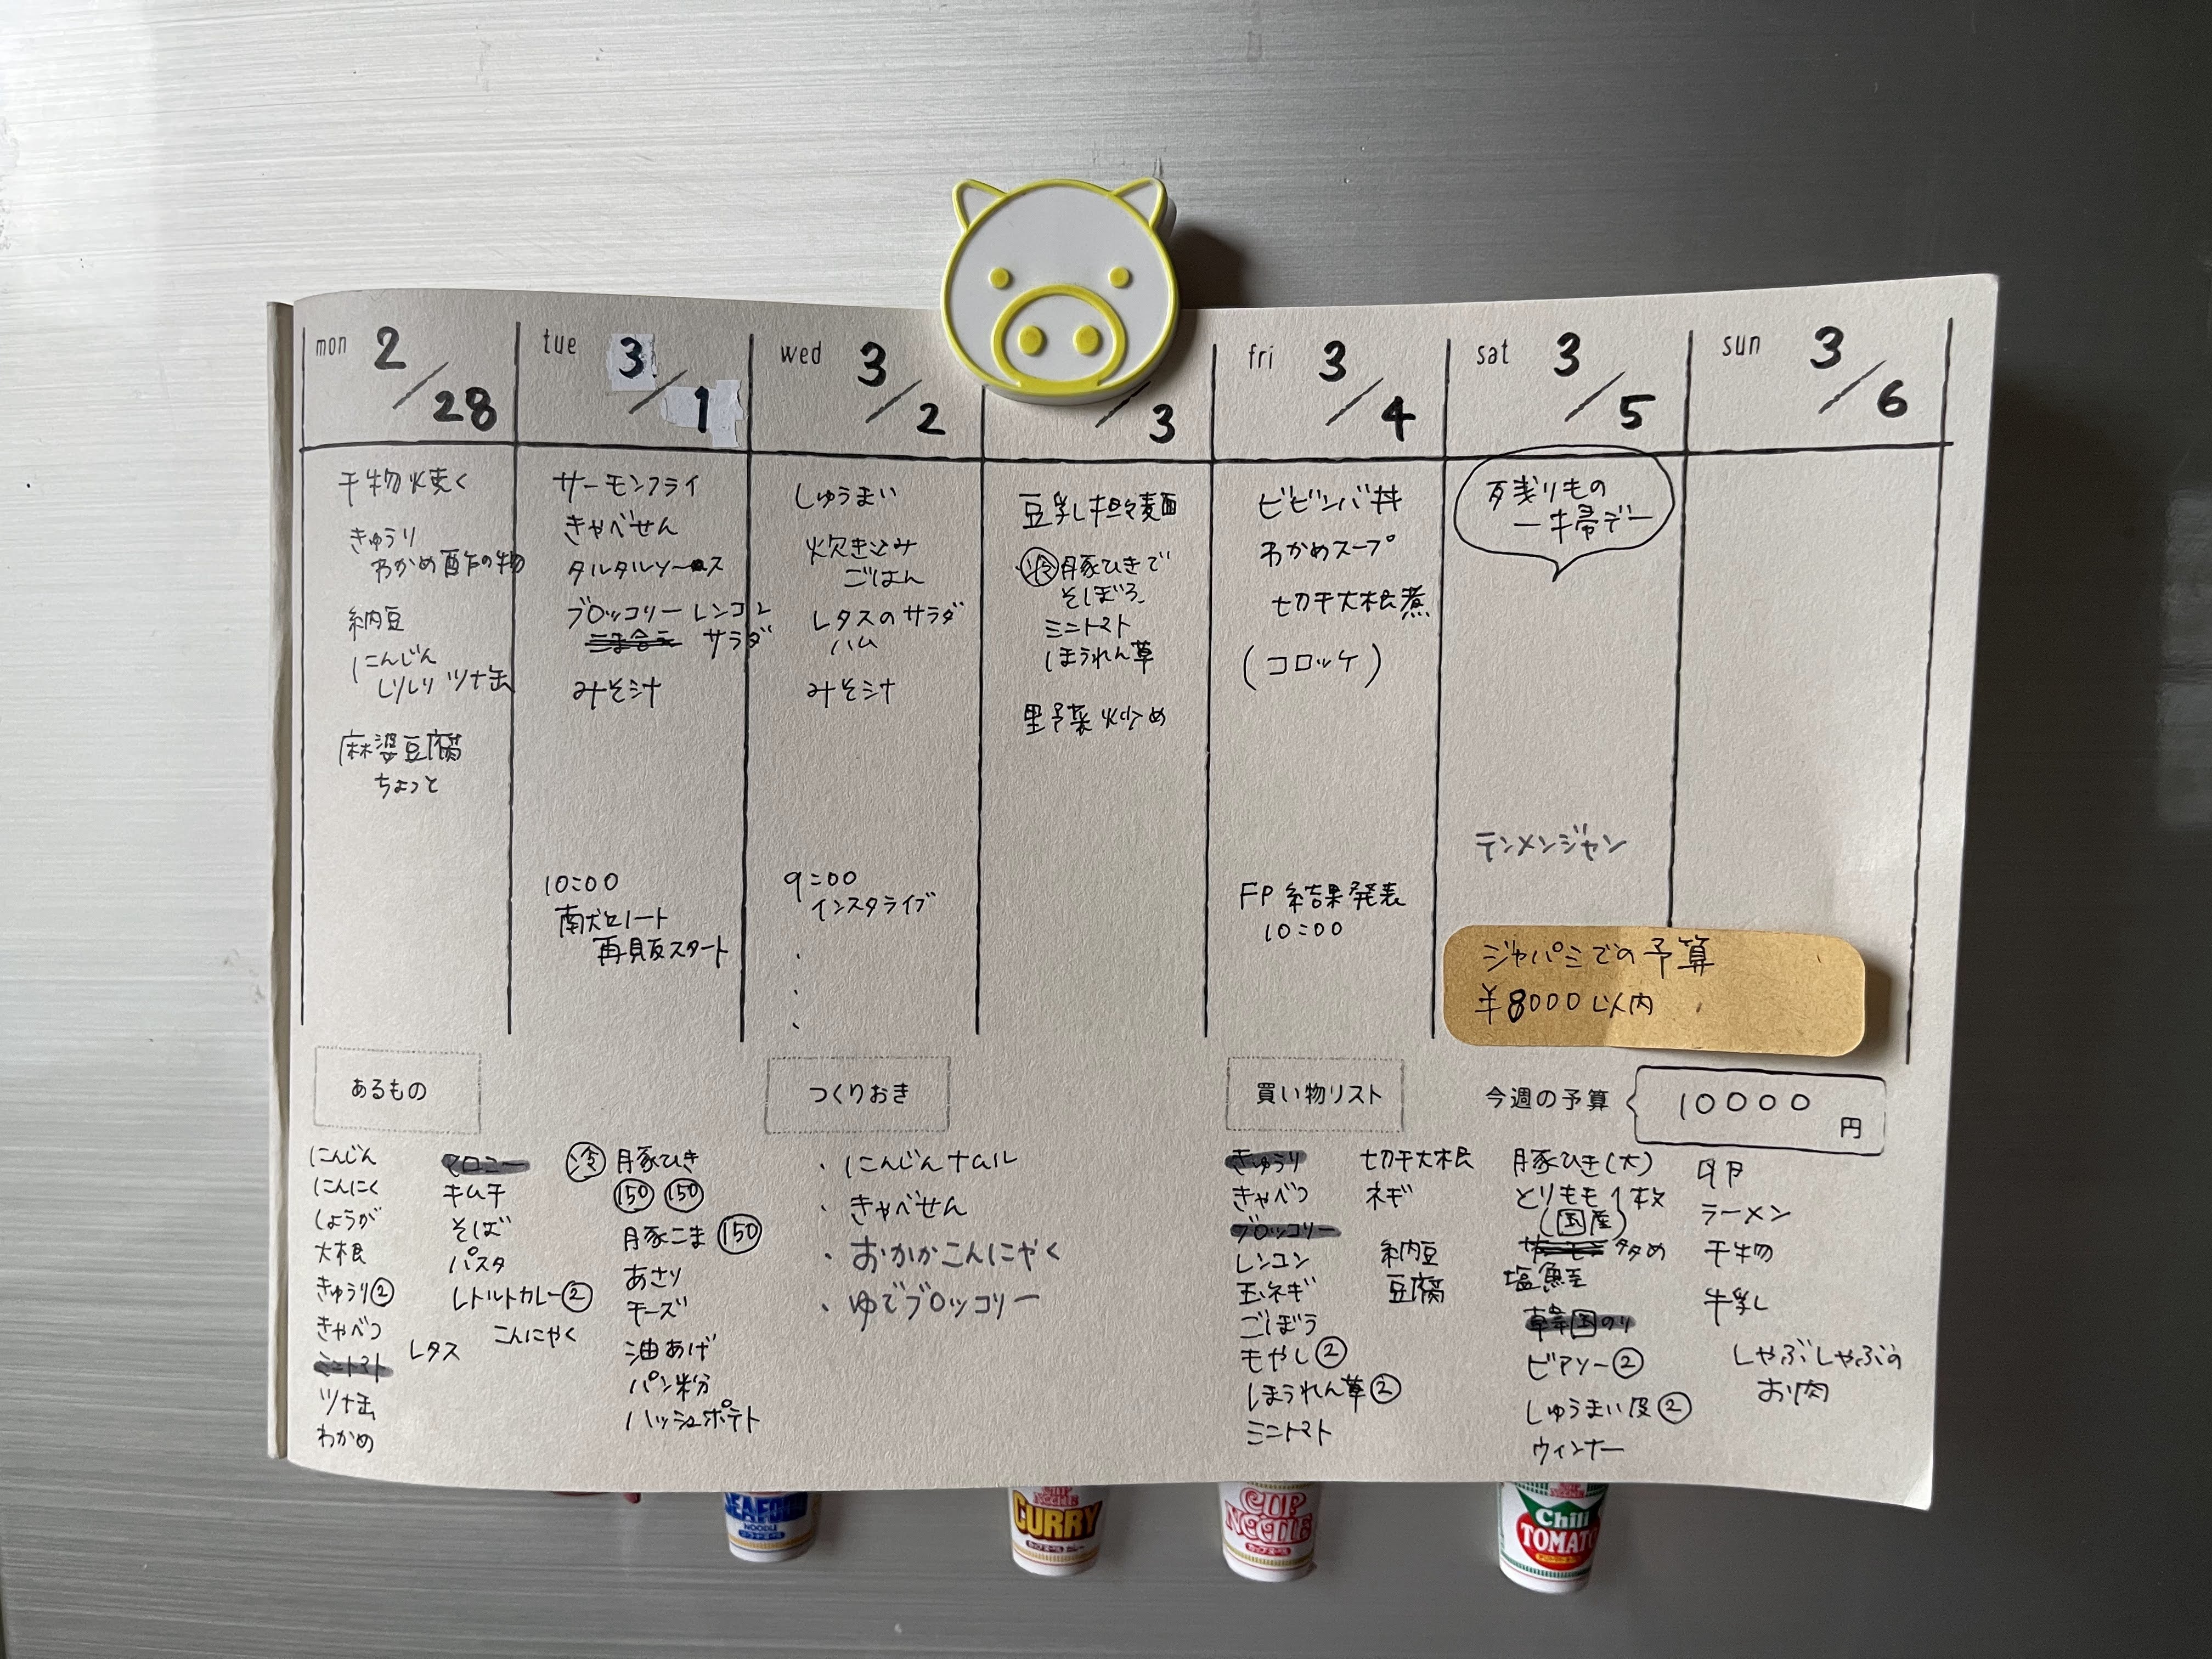 mon 2/28
干物焼く
きゅうり
わかめ酢の物
納豆
にんじん
しりしり ツナ缶
麻婆豆腐
ちょっと
tue 3/1
サーモンフライ
きゃべせん
タルタルソース
ブロッコリー レンコン
サラダ
みそ汁
10:00
献立ノート
再販スタート
wed 3/2
しゅうまい
炊き込み
ごはん
レタスのサラダ
ハム
みそ汁
9:00
インスタライブ
/3
豆乳担々麺
冷 豚ひきで
そぼろ
ミニトマト
ほうれん草
野菜炒め
fri 3/4
ビビンバ丼
わかめスープ
切干大根煮
(コロッケ)
FP 結果発表
10:00
sat 3/5
残りもの
一掃デー
テンメンジャン
sun 3/6
ジャパミでの予算
¥8000以内
あるもの
にんじん
にんにく
しょうが
大根
きゅうり②
きゃべつ
ミニトマト
ツナ缶
わかめ
マロニー
キムチ
そば
パスタ
レトルトカレー②
こんにゃく
レタス
冷 豚ひき
150 150
豚こま 150
あさり
チーズ
油あげ
パン粉
ハッシュポテト
つくりおき
・にんじんナムル
・きゃべせん
・おかかこんにゃく
・ゆでブロッコリー
買い物リスト
きゅうり
きゃべつ
ブロッコリー
レンコン
玉ネギ
ごぼう
もやし②
ほうれん草②
ミニトマト
切干大根
ネギ
納豆
豆腐
今週の予算 10000円
豚ひき(大)
とりもも1枚
(国産)
塩鮭
韓国のり
ビアソー②
しゅうまい皮②
ウィンナー
卵
ラーメン
干物
牛乳
しゃぶしゃぶの
お肉
SEAFOOD
NOODLE
CUP NOODLE
CURRY
CUP
NOODLE
Chili
TOMATO